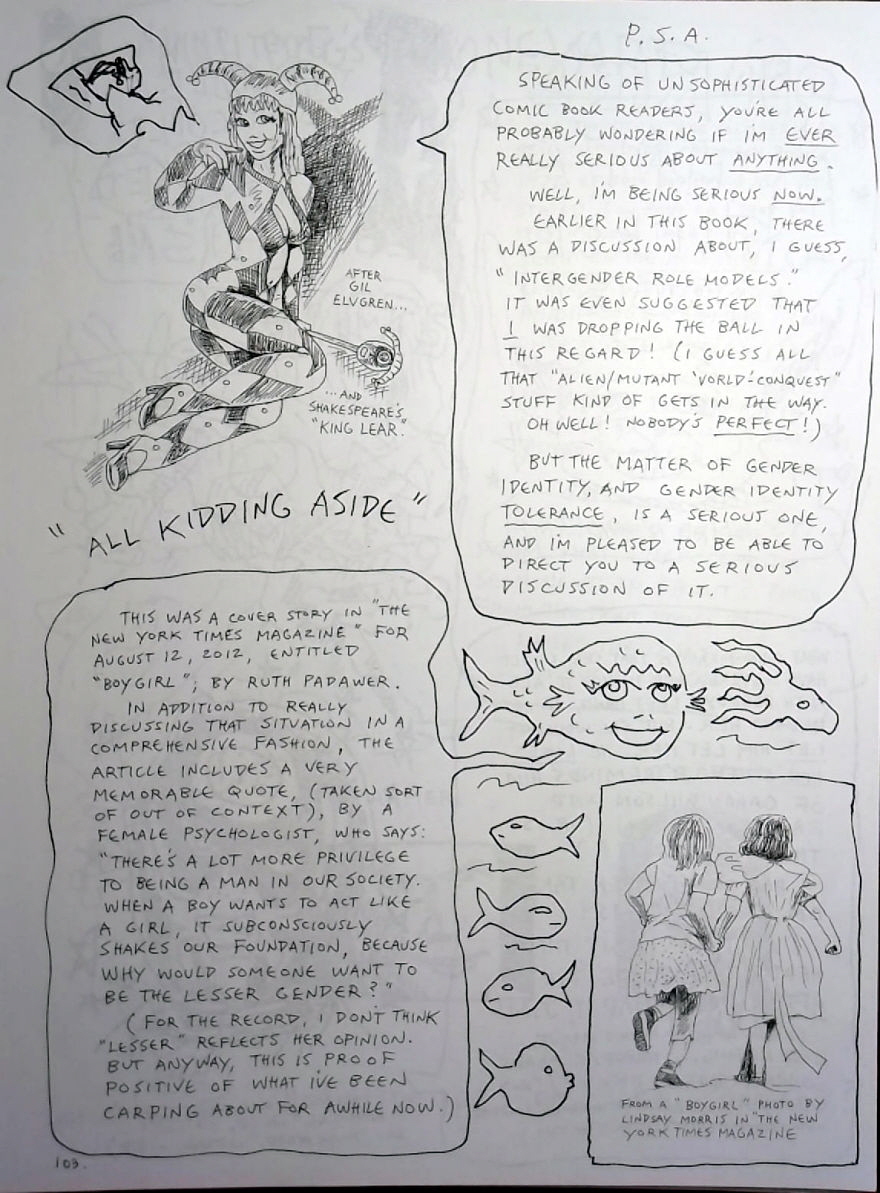 P.S.A.
SPEAKING OF UNSOPHISTICATED
COMIC BOOK READERS, YOU'RE ALL
PROBABLY WONDERING IF I'M EVER
REALLY SERIOUS ABOUT ANYTHING.
WELL, I'M BEING SERIOUS NOW.
EARLIER IN THIS BOOK, THERE
WAS A DISCUSSION ABOUT, I GUESS,
"INTERGENDER ROLE MODELS."
IT WAS EVEN SUGGESTED THAT
I WAS DROPPING THE BALL IN
THIS REGARD! (I GUESS ALL
THAT "ALIEN/MUTANT 'VORLD'-CONQUEST"
STUFF KIND OF GETS IN THE WAY.
OH WELL! NOBODY'S PERFECT!)
BUT THE MATTER OF GENDER
IDENTITY, AND GENDER IDENTITY
TOLERANCE, IS A SERIOUS ONE,
AND I'M PLEASED TO BE ABLE TO
DIRECT YOU TO A SERIOUS
DISCUSSION OF IT.
AFTER
GIL
ELVGREN...
...AND
SHAKESPEARE'S
"KING LEAR".
"ALL KIDDING ASIDE"
THIS WAS A COVER STORY IN "THE
NEW YORK TIMES MAGAZINE" FOR
AUGUST 12, 2012, ENTITLED
"BOYGIRL"; BY RUTH PADAWER.
IN ADDITION TO REALLY
DISCUSSING THAT SITUATION IN A
COMPREHENSIVE FASHION, THE
ARTICLE INCLUDES A VERY
MEMORABLE QUOTE, (TAKEN SORT
OF OUT OF CONTEXT), BY A
FEMALE PSYCHOLOGIST, WHO SAYS:
"THERE'S A LOT MORE PRIVILEGE
TO BEING A MAN IN OUR SOCIETY.
WHEN A BOY WANTS TO ACT LIKE
A GIRL, IT SUBCONSCIOUSLY
SHAKES OUR FOUNDATION, BECAUSE
WHY WOULD SOMEONE WANT TO
BE THE LESSER GENDER?"
(FOR THE RECORD, I DON'T THINK
"LESSER" REFLECTS HER OPINION.
BUT ANYWAY, THIS IS PROOF
POSITIVE OF WHAT I'VE BEEN
CARPING ABOUT FOR AWHILE NOW.)
FROM A "BOYGIRL" PHOTO BY
LINDSAY MORRIS IN "THE NEW
YORK TIMES MAGAZINE
103.